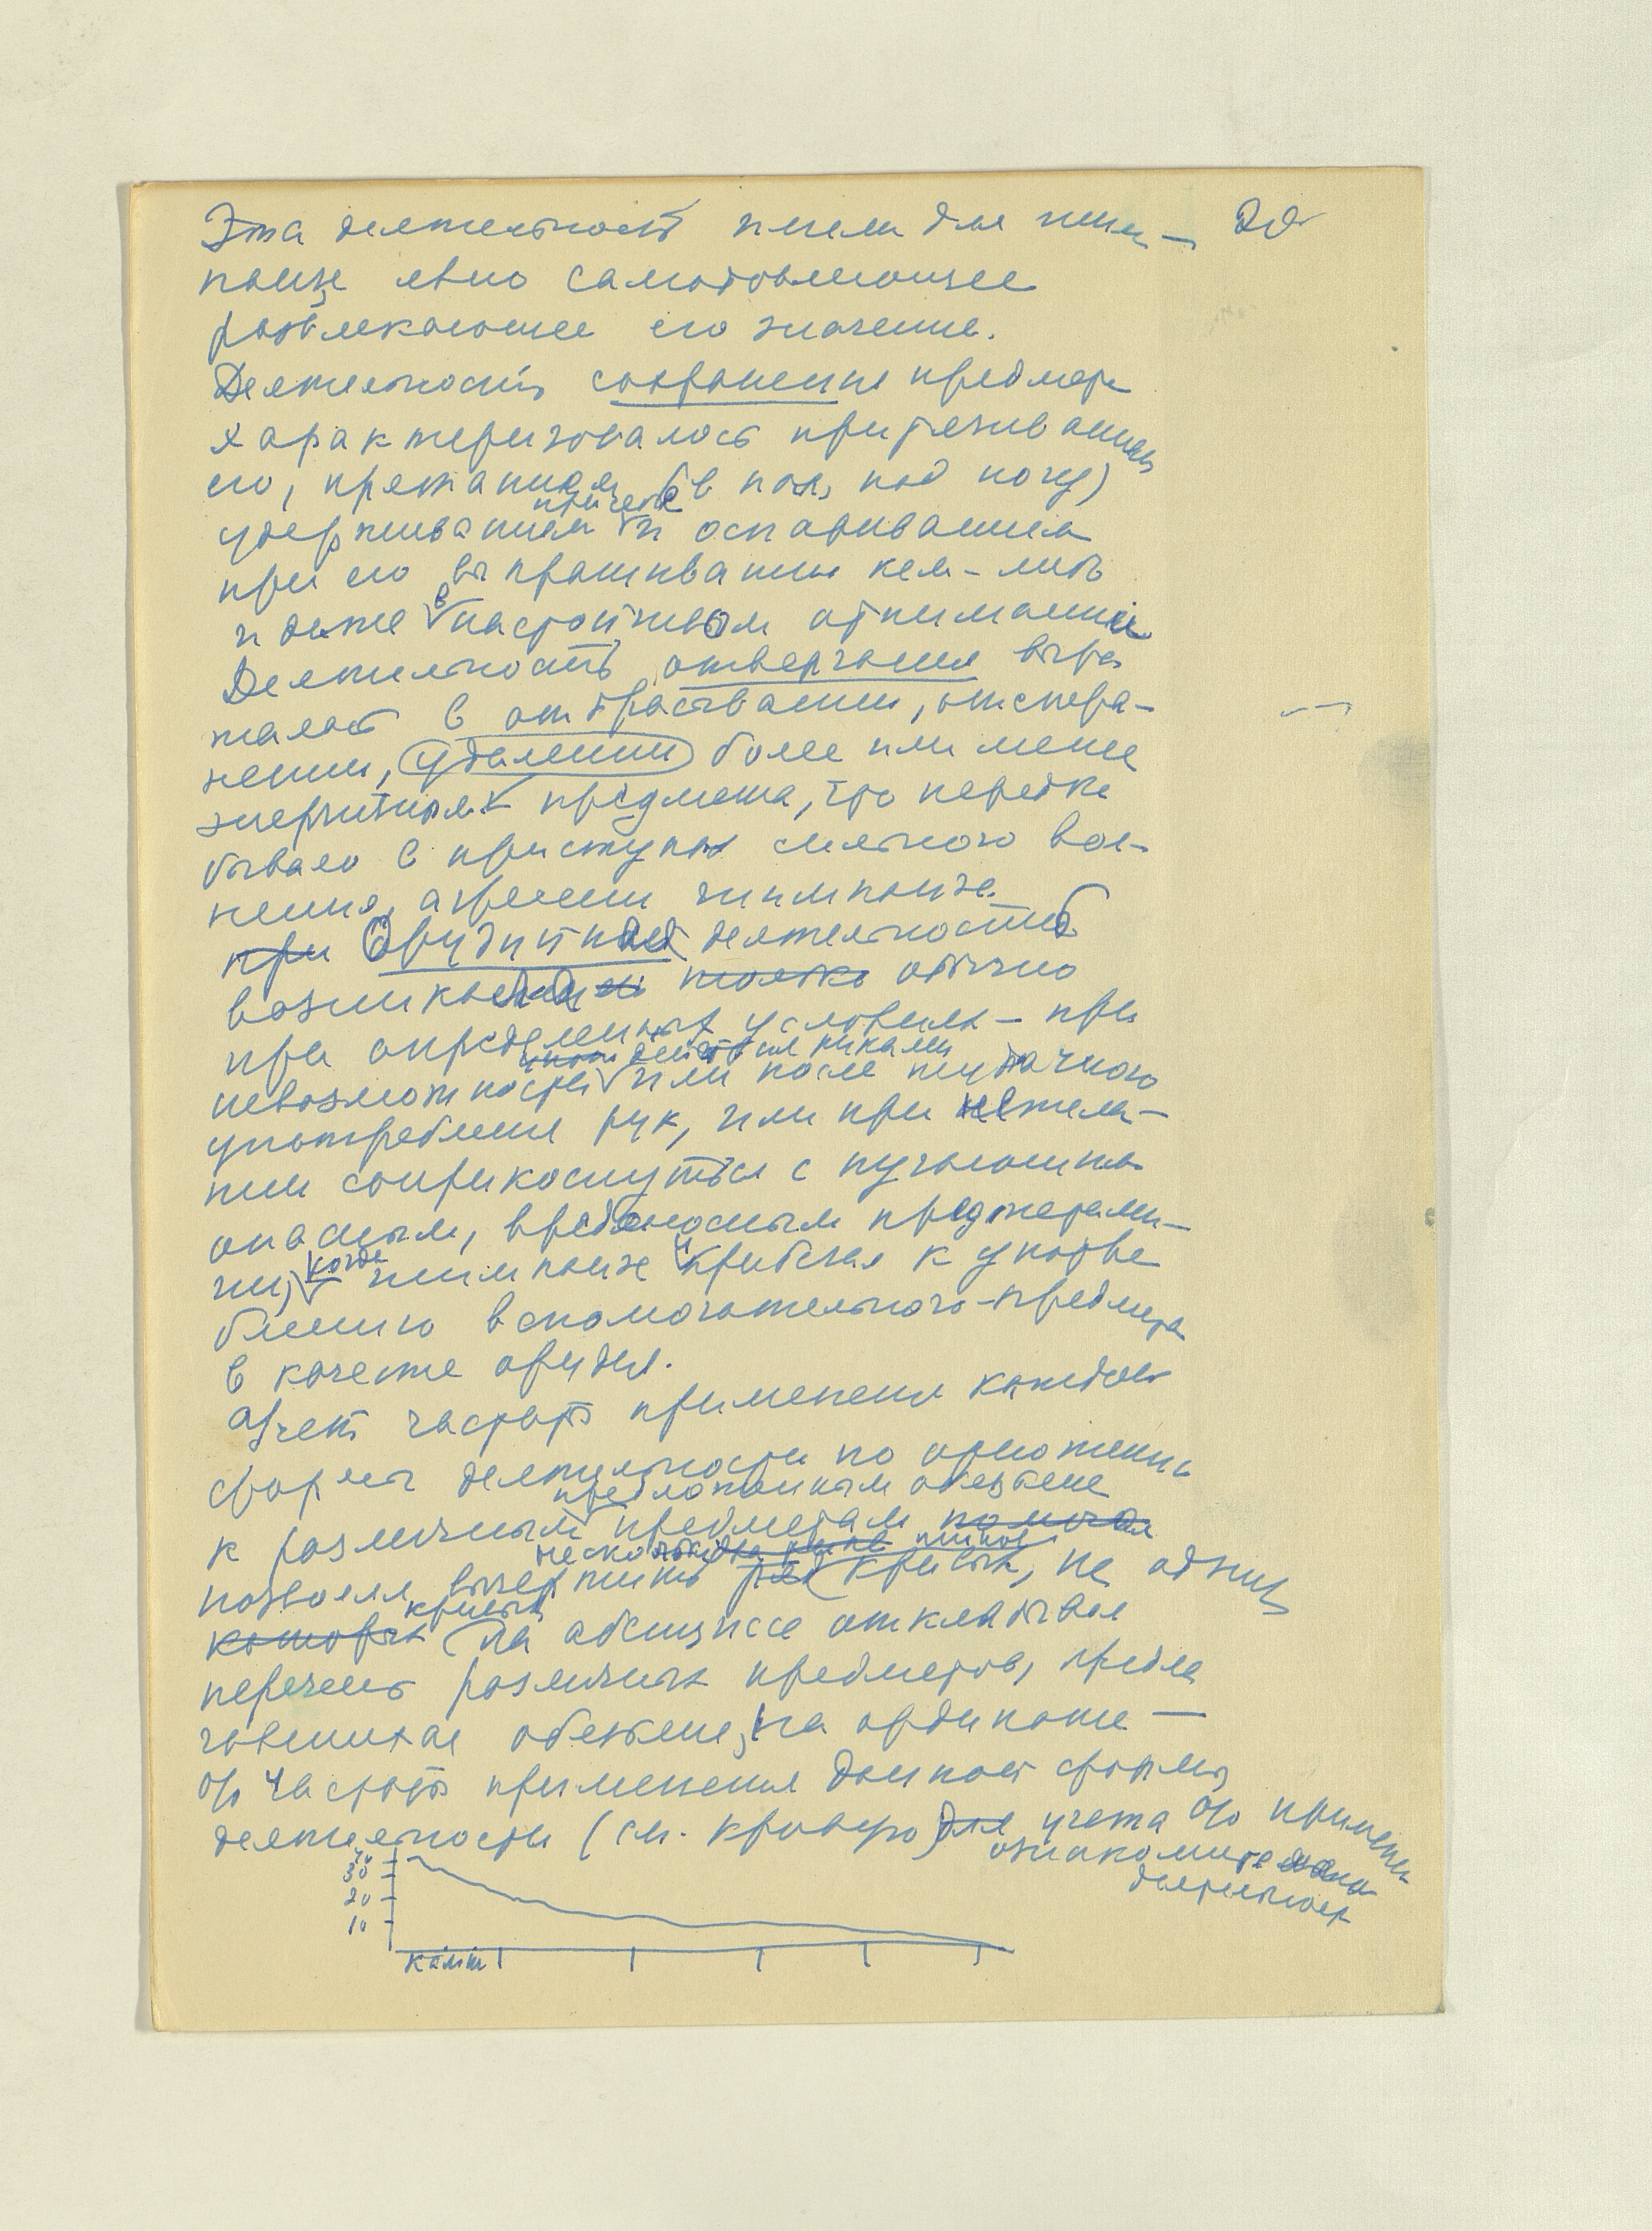 Эта деятельность имела для шим- 20
панзе явно самодовлеющее
развлекающее его значение.
Деятельность сохранения предмета
характеризовалась притягиванием
его, прятанием (в пах, под ногу)
удерживанием причем и оспариванием
при его выпрашивании кем-либо
и даже в настойчивом отнимании
Деятельность отвергания выра
жалась в отбрасывании, отстра-
нении, удалении более или менее
энергичном предмета, что нередко
бывало в приступах сильного вол-
нения, агрессии шимпанзе.
при Орудийная деятельность
возникала только обычно
при определенных условиях – при
действия руками
невозможности или после неудачного
употребления рук, или при нежела-
нии соприкоснуться с пугающими
опасным, вредоносным предметами-
когда шимпанзе прибегал к употре
блению вспомогательного предмета
в качестве орудия.
Учет частоты применения каждой
формы деятельности по отношению
предложенным обезьяне
к различным предметам помогал
несколько
позволял вычертить ряд кривых, на одних
кривых
которых на абсциссе откладывал
перечень различных предметов, предла
гавшихся обезьяне, на ординате —
% частоты применения данной формы
деятельности (см. кривую) для учета % применения
ознакомите
деятельност
30
20
10